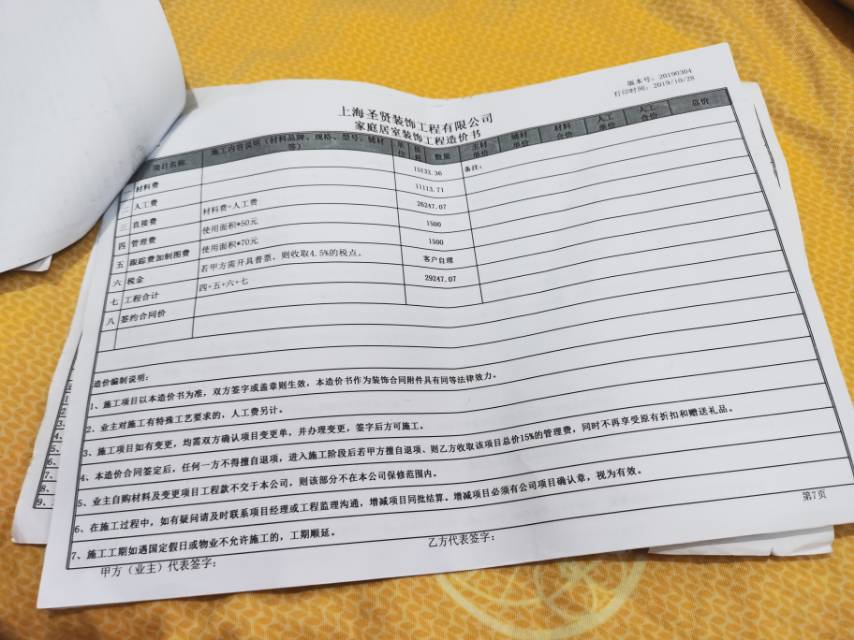 版本号：20190304
打印时间：2019/10/28
上海圣贤装饰工程有限公司
家庭居室装饰工程造价书
项目名称 施工内容说明（材料品牌、规格、型号、辅材等） 单位 数量 主材单价 辅材单价 材料合价 人工单价 人工合价 总价
材料费 15133.36 备注：
二 人工费 11113.71
三 直接费 材料费+人工费 26247.07
四 管理费 使用面积*50元 1500
五 跟踪费加制图费 使用面积*70元 1500
六 税金 若甲方需开具普票，则收取4.5%的税点。 客户自理
七 工程合计 四+五+六+七 29247.07
八 签约合同价
造价编制说明：
1、施工项目以本造价书为准，双方签字或盖章则生效，本造价书作为装饰合同附件具有同等法律效力。
2、业主对施工有特殊工艺要求的，人工费另计。
3、施工项目如有变更，均需双方确认项目变更单，并办理变更，签字后方可施工。
4、本造价合同签定后，任何一方不得擅自退项，进入施工阶段后若甲方擅自退项、则乙方收取该项目总价15%的管理费，同时不再享受原有折扣和赠送礼品。
5、业主自购材料及变更项目工程款不交于本公司，则该部分不在本公司保修范围内。
6、在施工过程中，如有疑问请及时联系项目经理或工程监理沟通，增减项目同批结算。增减项目必须有公司项目确认章，视为有效。
7、施工工期如遇国定假日或物业不允许施工的，工期顺延。
甲方（业主）代表签字： 乙方代表签字：
第7页